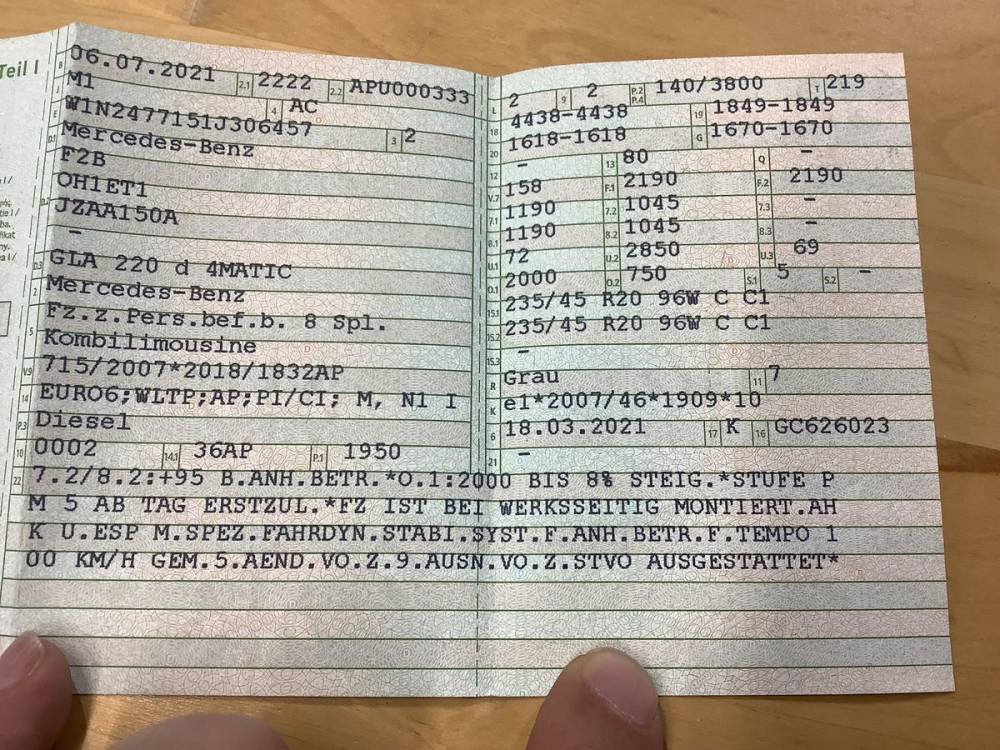 Teil I
B 06.07.2021 2.1 2222 2.2 APU000333
J M1 4 AC
E W1N2477151J306457 3 2
D.1 Mercedes-Benz
F2B
D.2 OH1ET1
JZAA150A
–
D.3 GLA 220 d 4MATIC
2 Mercedes-Benz
5 Fz.z.Pers.bef.b. 8 Spl.
Kombilimousine
V.9 715/2007*2018/1832AP
14 EURO6;WLTP;AP;PI/CI; M, N1 I
P.3 Diesel
10 0002 14.1 36AP P.1 1950
L 2 9 2 P.2 P.4 140/3800 T 219
18 4438-4438 19 1849-1849
20 1618-1618 G 1670-1670
12 – 13 80 Q –
V.7 158 F.1 2190 F.2 2190
7.1 1190 7.2 1045 7.3 –
8.1 1190 8.2 1045 8.3 –
U.1 72 U.2 2850 U.3 69
O.1 2000 O.2 750 S.1 5 S.2 –
15.1 235/45 R20 96W C C1
15.2 235/45 R20 96W C C1
15.3 –
R Grau 11 7
K e1*2007/46*1909*10
6 18.03.2021 17 K 16 GC626023
21 –
22 7.2/8.2:+95 B.ANH.BETR.*O.1:2000 BIS 8% STEIG.*STUFE P
M 5 AB TAG ERSTZUL.*FZ IST BEI WERKSSEITIG MONTIERT.AH
K U.ESP M.SPEZ.FAHRDYN.STABI.SYST.F.ANH.BETR.F.TEMPO 1
00 KM/H GEM.5.AEND.VO.Z.9.AUSN.VO.Z.STVO AUSGESTATTET*